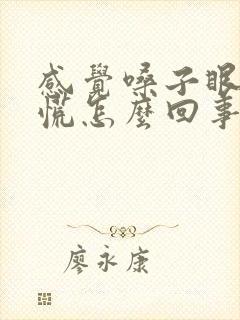 感覺嗓子眼
慌怎麼回事
廖永康